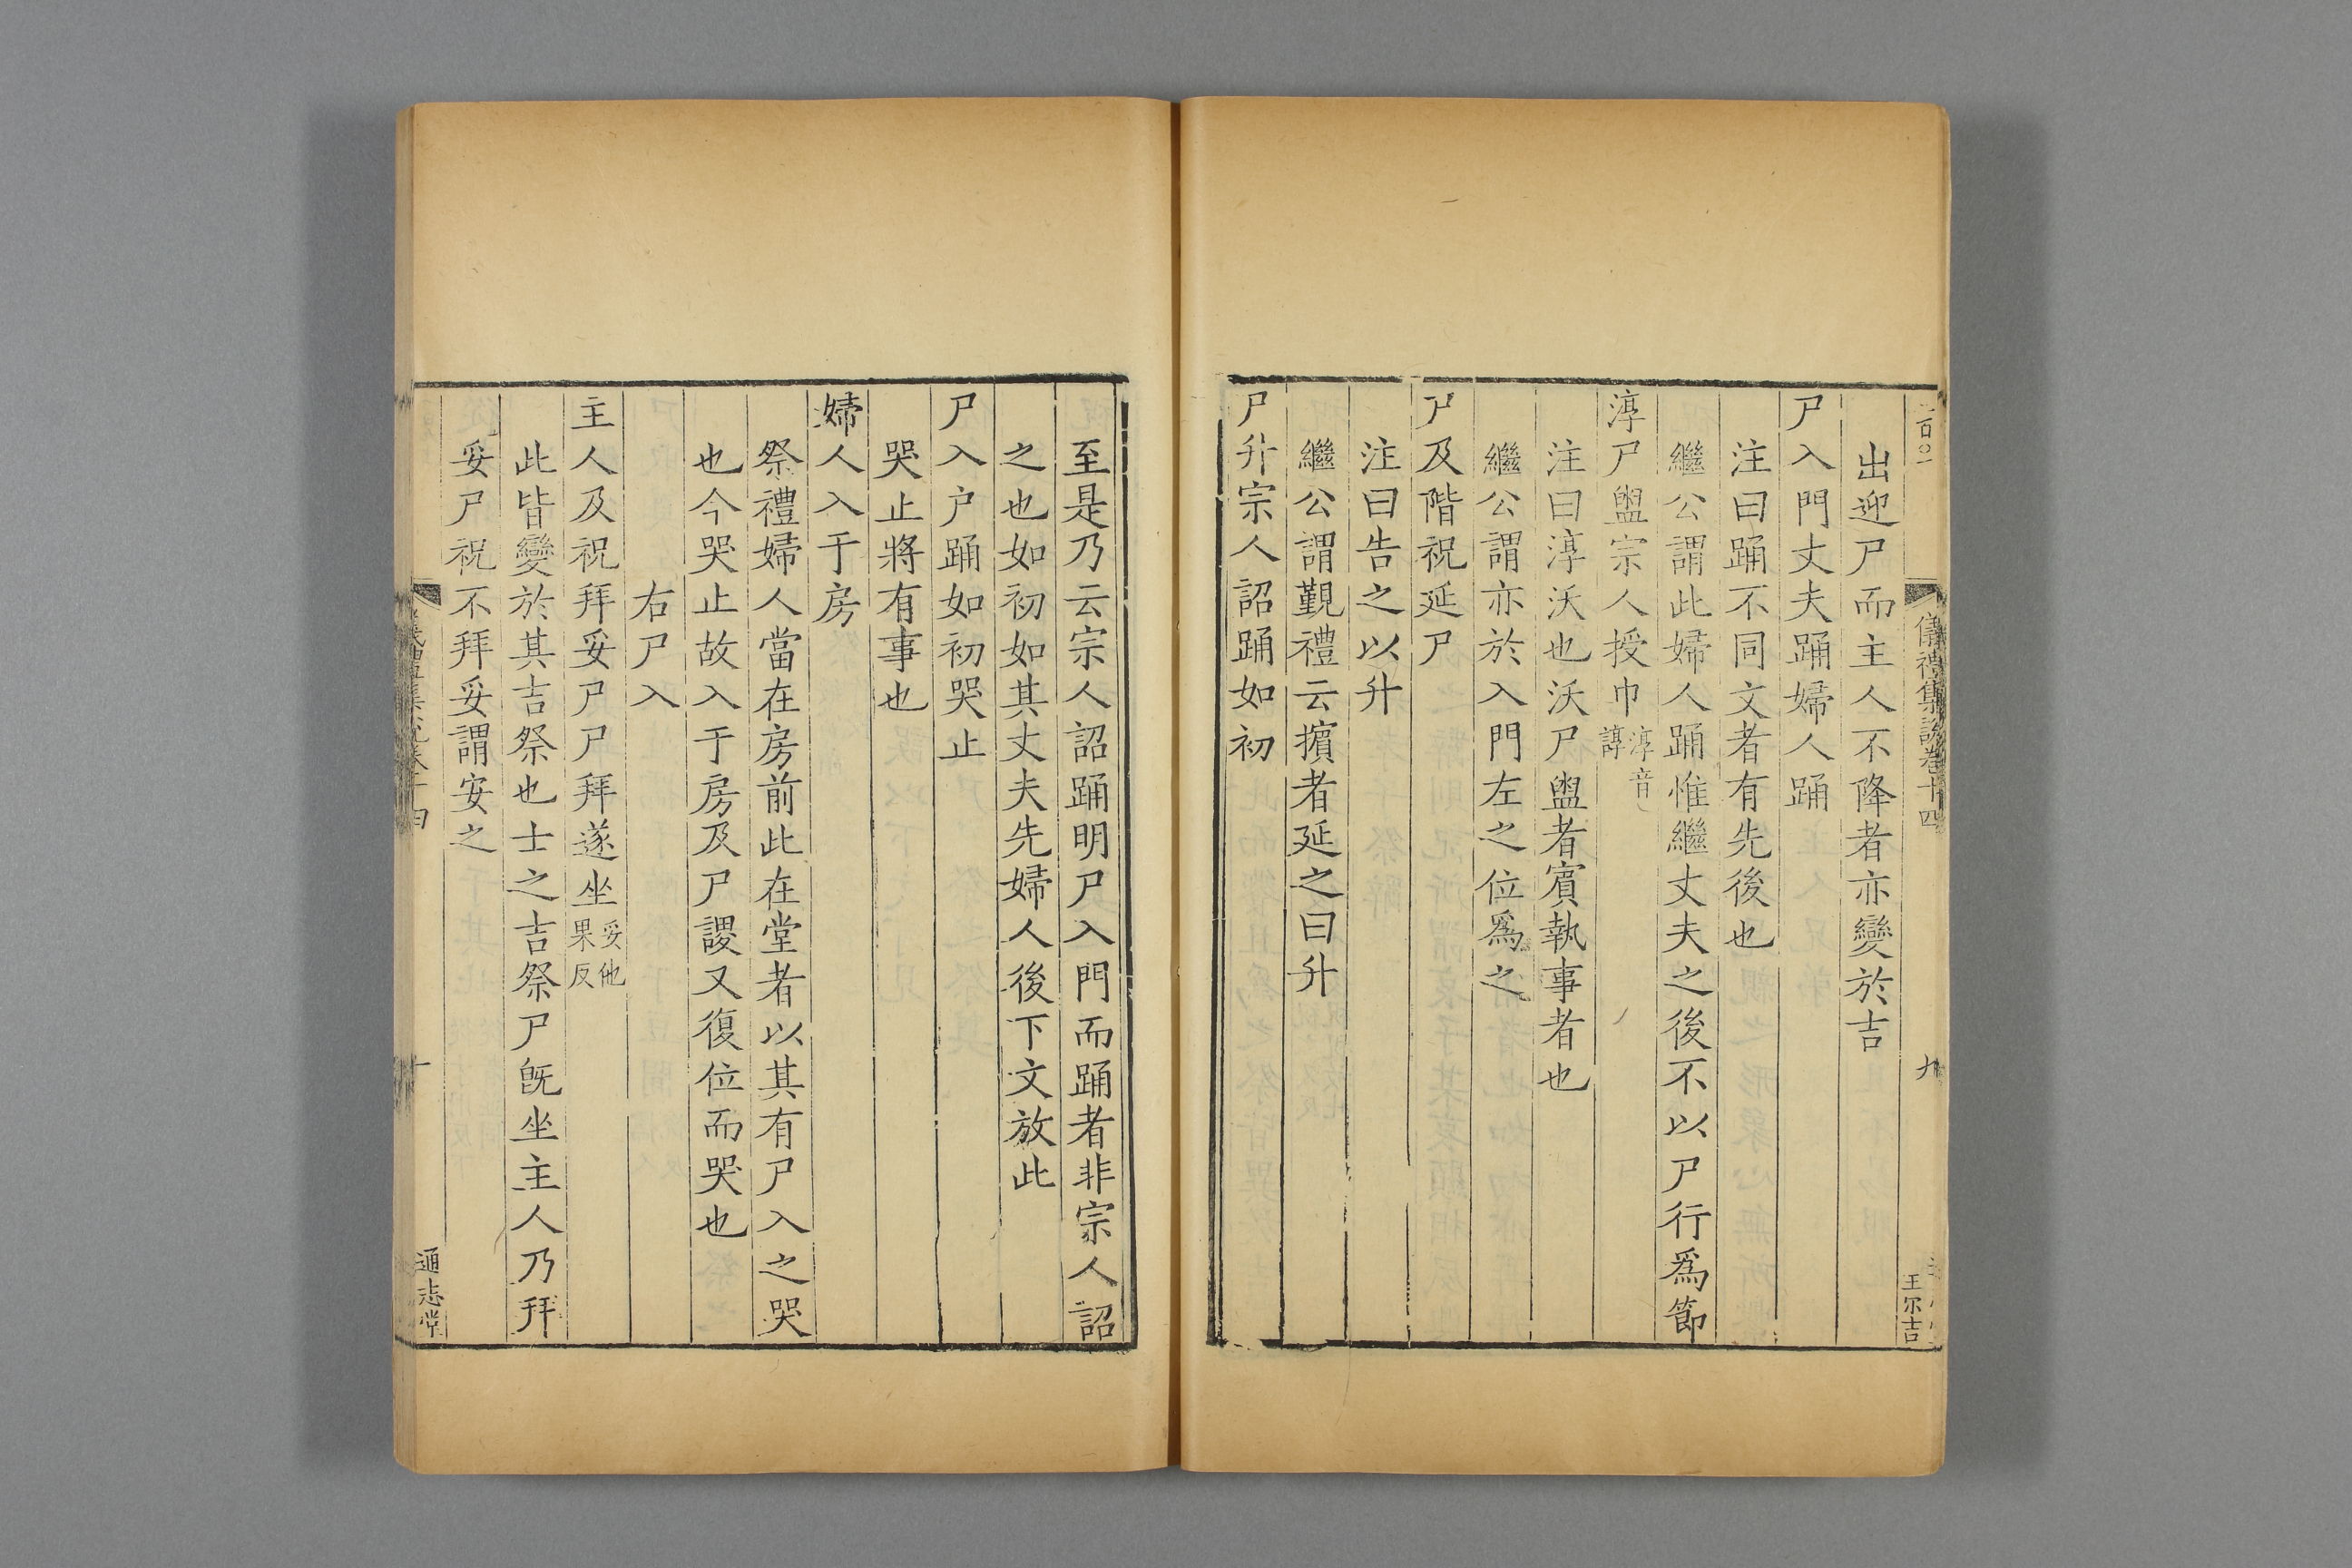 儀禮集說卷十四
九
王尔吉
出迎尸而主人不降者亦變於吉
尸入門丈夫踊婦人踊
注曰踊不同文者有先後也
繼公謂此婦人踊惟繼丈夫之後不以尸行爲節
淳尸盥宗人授巾淳音諄
注曰淳沃也沃尸盥者賓執事者也
繼公謂亦於入門左之位爲之
尸及階祝延尸
注曰告之以升
繼公謂覲禮云擯者延之曰升
尸升宗人詔踊如初
至是乃云宗人詔踊明尸入門而踊者非宗人詔
之也如初如其丈夫先婦人後下文放此
尸入户踊如初哭止
哭止將有事也
婦人入于房
祭禮婦人當在房前此在堂者以其有尸入之哭
也今哭止故入于房及尸謖又復位而哭也
右尸入
主人及祝拜妥尸尸拜遂坐妥他果反
此皆變於其吉祭也士之吉祭尸旣坐主人乃拜
妥尸祝不拜妥謂安之
十
通志堂